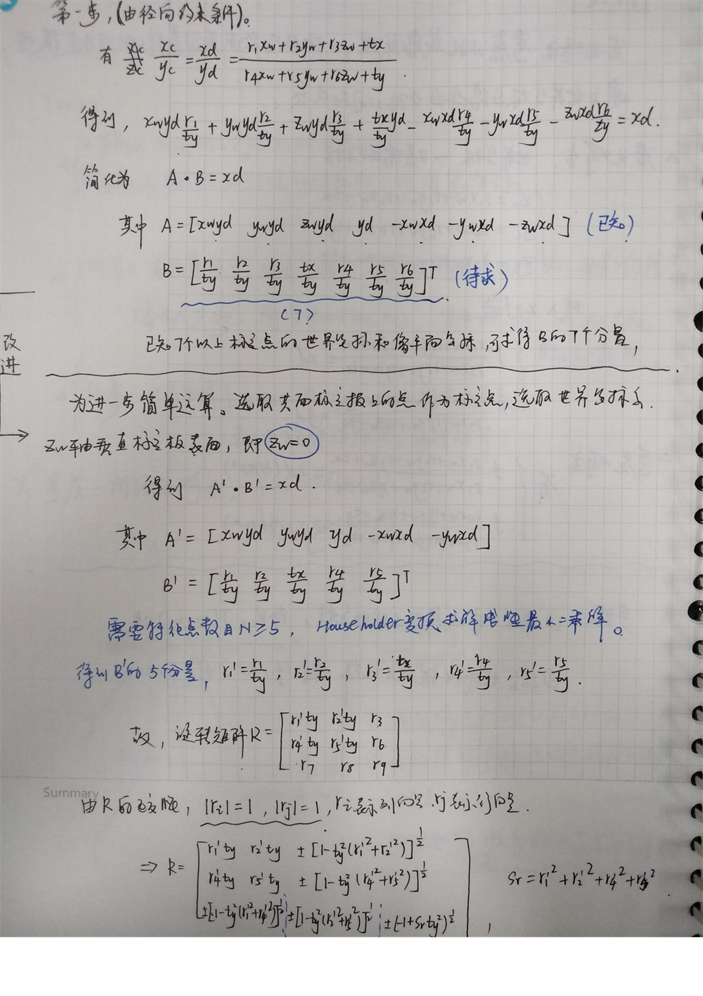 第一步,(由径向约束条件)。
有 xc/yc = xd/yd = (r1xw+r2yw+r3zw+tx)/(r4xw+r5yw+r6zw+ty).
得到, xwyd r1/ty + ywyd r2/ty + zwyd r3/ty + tx/ty yd - xwxd r4/ty - ywxd r5/ty - zwxd r6/ty = xd.
简化为 A·B=xd
其中 A=[xwyd ywyd zwyd yd -xwxd -ywxd -zwxd] (已知)
B=[r1/ty r2/ty r3/ty tx/ty r4/ty r5/ty r6/ty]T (待求)
(7)
已知7个以上标定点的世界坐标和像平面坐标,可求得B的7个分量,
改进
为进一步简单运算。选取共面标定板上的点作为标定点,选取世界坐标系.
zw轴垂直标定板表面,即 zw=0
得到 A'·B'=xd.
其中 A'=[xwyd ywyd yd -xwxd -ywxd]
B'=[r1/ty r2/ty tx/ty r4/ty r5/ty]T
需要特征点数目N≥5, Householder变换求解线性最小二乘解。
得到B'的5个分量, r1'=r1/ty, r2'=r2/ty, r3'=tx/ty, r4'=r4/ty, r5'=r5/ty.
故,旋转矩阵R=[r1'ty r2'ty r3
r4'ty r5'ty r6
r7 r8 r9]
Summary
由R的正交性, |ri|=1, |rj|=1, ri表示列向量.rj表示行向量.
⇒ R=[r1'ty r2'ty ±[1-ty²(r1'²+r2'²)]^1/2
r4'ty r5'ty ±[1-ty²(r4'²+r5'²)]^1/2 Sr=r1'²+r2'²+r4'²+r5'²
±[1-ty²(r1'²+r4'²)]^1/2 ±[1-ty²(r2'²+r5'²)]^1/2 ±(-1+Srty²)^1/2],